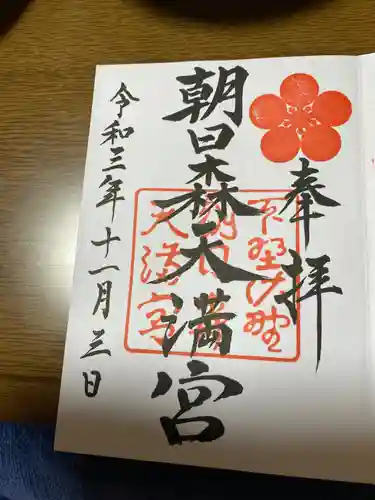 奉拝
朝日森天満宮
令和三年十一月三日
下野佐野
朝日森
天満宮